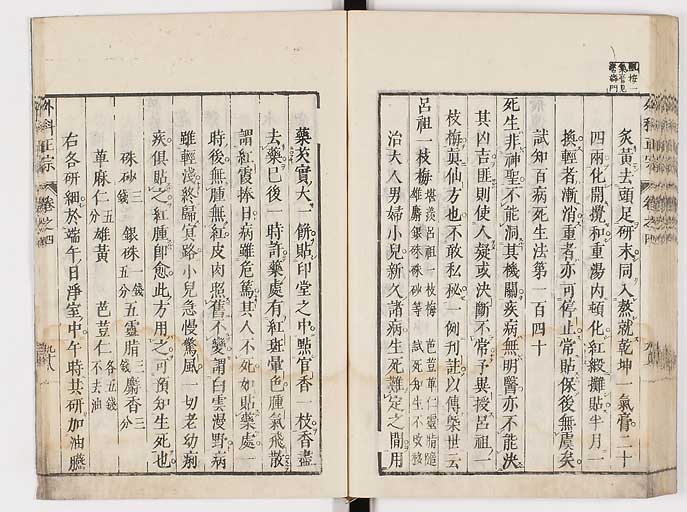 炙黃去頭足研末同入熬就乾坤一氣膏二十
四兩化開攪和重湯内頓化紅緞攤貼半月一
換輕者漸消重者亦可停止常貼保後無虞矣
試知百病死生法第一百四十
死生非神聖不能洞其機關疾病無明醫亦不能決
其凶吉匪則使人疑或決斷不常予異授呂祖一
枝梅真仙方也不敢私秘一例刊註以傳桀世云
呂祖一枝梅
堪羨呂祖一枝梅 芭荳草仁靈脂隨
雄麝銀硃硃砂等 試死知生不改移
治大人男婦小兒新久諸病生死難定之間用
藥芡實大一餅貼印堂之中點官香一枝香盡
去藥已後一時許藥處有紅斑暈色腫氣飛散
謂紅霞捧日病雖危篤其人不死如貼藥處一
時後無腫無紅皮肉照舊不變謂白雲漫野病
雖輕淺終歸冥路小兒急慢驚風一切老幼痢
疾俱貼之紅腫即愈此方用之可預知生死也
硃砂三錢 銀硃一錢五分 五靈脂三錢 麝香三分
蓽麻仁五分 雄黃 芭荳仁各五錢不去油
右各研細於端午日淨室中午時共研加油臙
外科正宗 卷之四